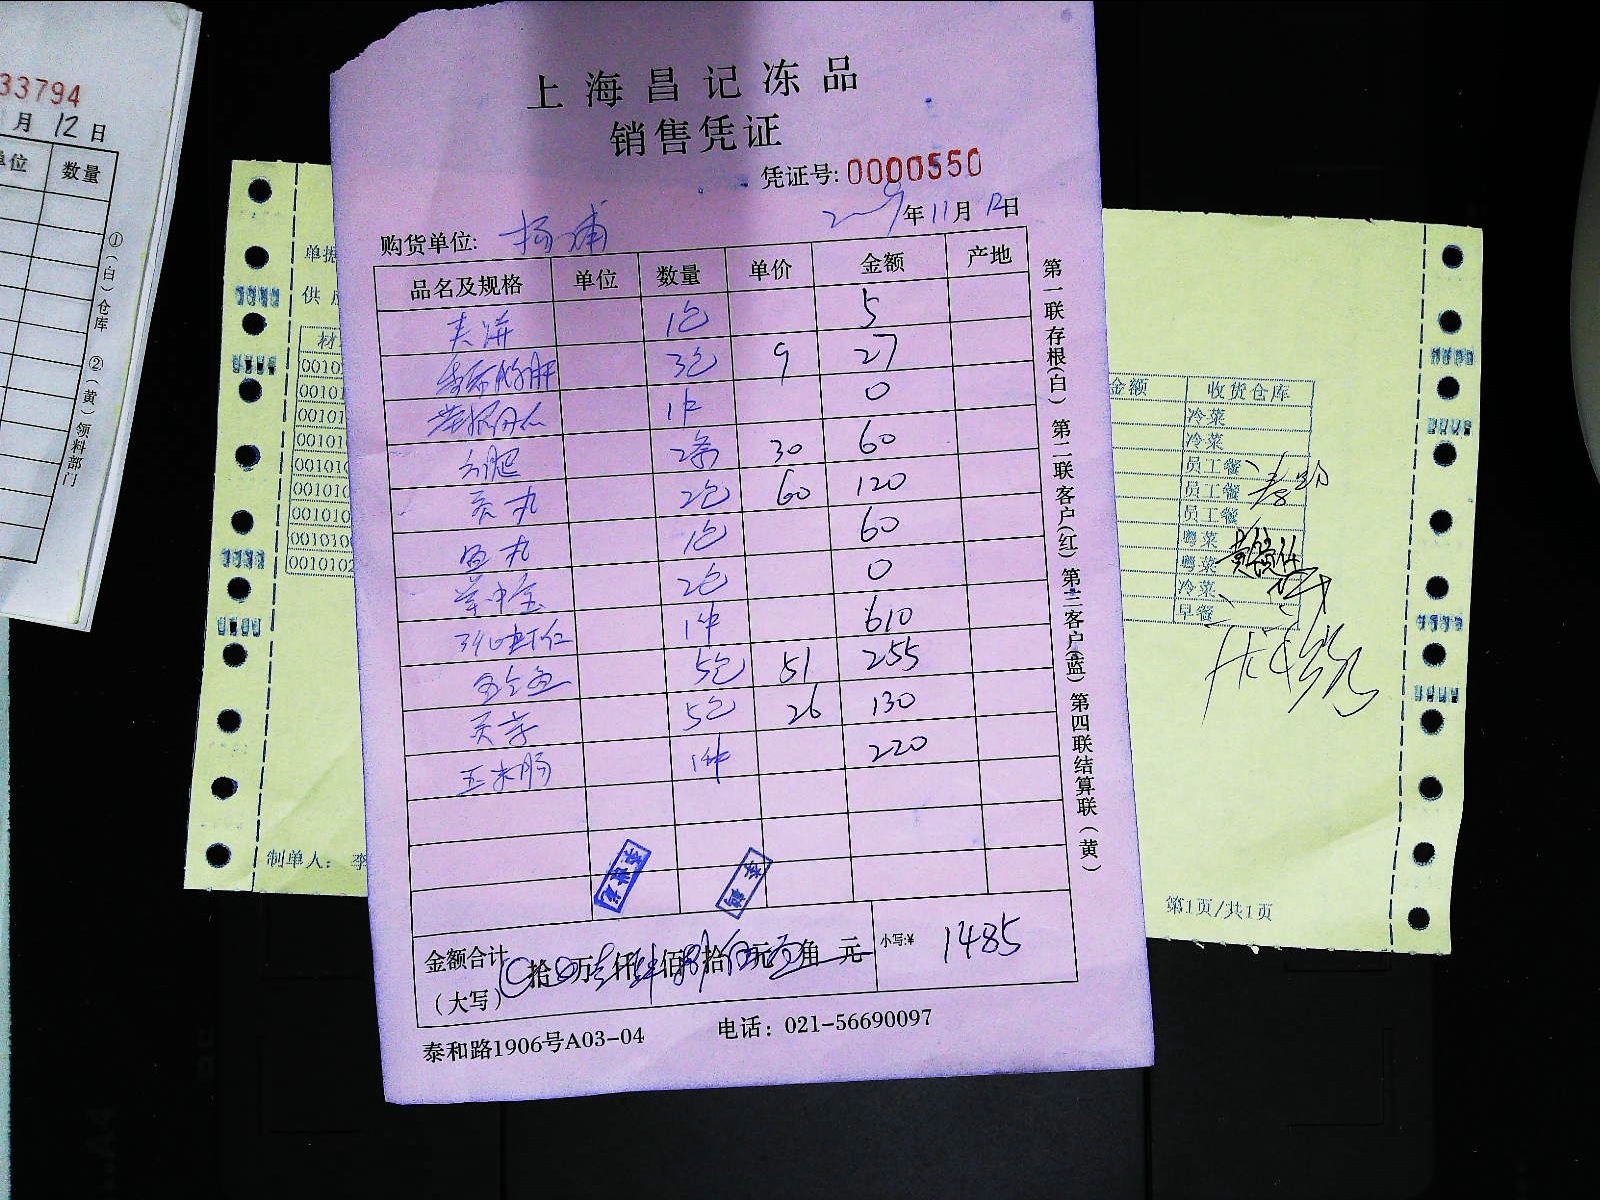 33794
月 12 日
单位 数量
①(白)仓库 ②(黄)领料部门
上海昌记冻品
销售凭证
凭证号: 0000550
购货单位: 杨浦 2009年11月12日
品名及规格 单位 数量 单价 金额 产地
夹饼 1包 5
3包 9 27
1件 0
2条 30 60
贡丸 2包 60 120
鱼丸 1包 60
2包 0
虾仁 1件 610
5包 51 255
5包 26 130
玉米肠 1件 220
金额合计(大写) 拾 万 仟 佰 拾 元 角 元 小写:¥ 1485
泰和路1906号A03-04 电话: 021-56690097
第一联存根(白) 第二联客户(红) 第三客户(蓝) 第四联结算联(黄)
单据
供应
材
00101
00101
00101
00101
001010
001010
001010
0010100
0010102
制单人: 李
金额 收货仓库
冷菜
冷菜
员工餐
员工餐
员工餐
粤菜
粤菜
冷菜
早餐
第1页/共1页